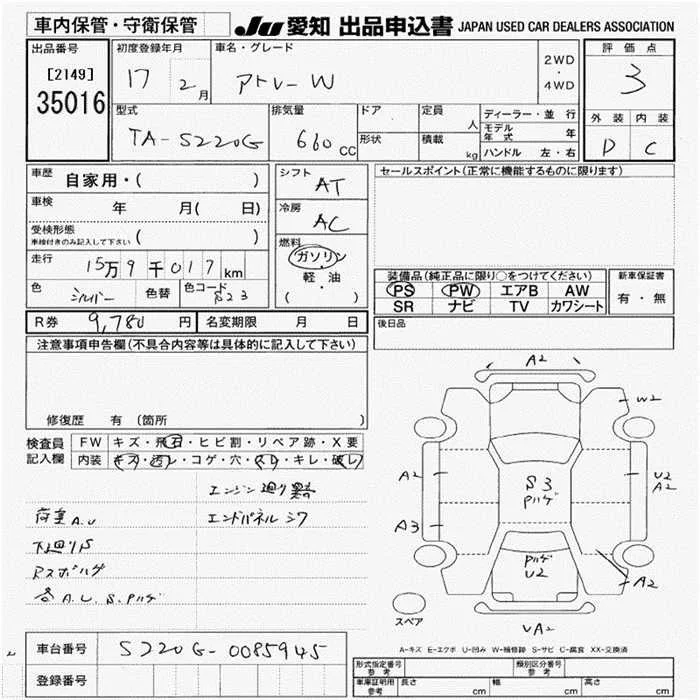 車内保管・守衛保管 JU 愛知 出品申込書 JAPAN USED CAR DEALERS ASSOCIATION
出品番号 [2149] 35016
初度登録年月 17 2月
車名・グレード アトレーW
2WD・4WD
評価点 3
外装 D 内装 C
型式 TA-S220G
排気量 660cc
ドア 形状
定員 人
積載 kg
ディーラー・並行
モデル年式 年
ハンドル 左・右
車歴 自家用・( )
車検 年 月( 日)
受検形態 車検付きのみ記入して下さい ( )
走行 15万9千017km
色 シルバー 色替 色コード S23
シフト AT
冷房 AC
燃料 ガソリン・軽・油 ( )
セールスポイント(正常に機能するものに限ります)
装備品(純正品に限り○をつけてください)
PS PW エアB AW
SR ナビ TV カワシート
新車保証書 有・無
R券 9,780円 名変期限 月 日
後日品
注意事項申告欄(不具合内容等は具体的に記入して下さい)
修復歴 有(箇所 )
検査員記入欄
FW キズ・飛石・ヒビ割・リペア跡・X要
内装 キズ・汚レ・コゲ・穴・スレ・キレ・破レ
エンジン廻り異音
荷室A.U エンドパネルシワ
下廻りS
A.U.S.Pハゲ
A2
W2
A2 S3 Pハゲ U2 A2
A3
Pハゲ U2
A2
スペア
UA2
A-キズ E-エクボ U-凹み W-補修跡 S-サビ C-腐食 XX-交換済
車台番号 S220G-0085945
登録番号
形式指定番号 参考 類別区分番号 参考
車庫証明用 参考 長さ cm 幅 cm 高さ cm